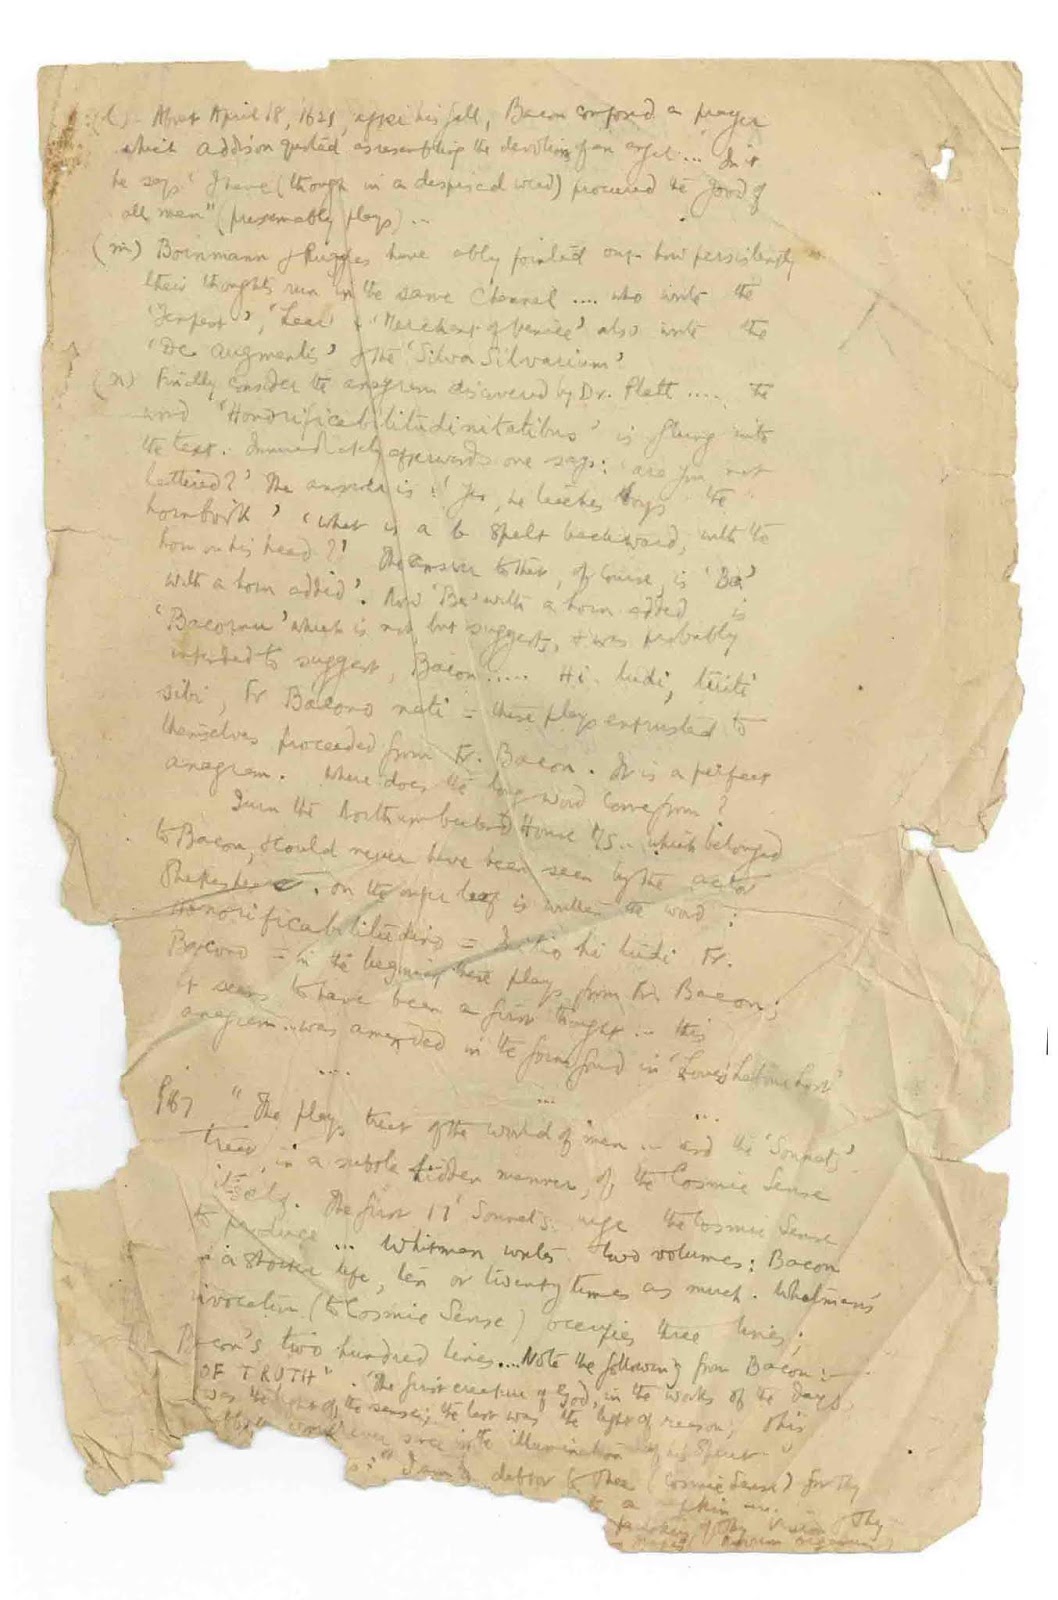 (l) - About April 18, 1621, after his fall, Bacon composed a prayer
which Addison quoted as resembling the devotion of an angel ... In it
he says 'I have (though in a despised weed) procured the good of
all men" (presumably plays) ...
(m) Bornmann & Ruggles have ably pointed out how persistently
their thoughts run in the same channel .... who wrote the
'Tempest', 'Lear' & 'Merchant of Venice' also wrote the
'De Augmentis' & the 'Silva Silvarium'.
(n) Finally consider the anagram discovered by Dr. Platt ..... The
word 'Honorificabilitudinitatibus' is flung into
the text. Immediately afterwards one says: 'are you not
lettered?' The answer is: 'Yes, he teaches boys the
hornbook' 'what is a b spelt backward, with the
horn on his head?' The answer to that, of course, is 'Ba'
with a horn added'. Now 'Ba' with a horn added is
'Bacornu' which is not, but suggests, & was probably
intended to suggest, Bacon ..... Hi ludi, tuiti
sibi, Fr Bacono nati = these plays entrusted to
themselves proceeded from Fr. Bacon. It is a perfect
anagram. Where does the long word come from?
Turn the Northumberland House MS .. which belonged
to Bacon, & could never have been seen by the actor
Shakespeare. on the outer leaf is written the word:
Honorificabilitudino = Initio hi ludi Fr.
Bacono = in the beginning these plays from Fr. Bacon;
it seems to have been a first thought ... this
anagram .. was amended in the form found in 'Loves Labour Lost'
.... ... ...
P167 "The plays treat of the world of men ... and the 'Sonnets'
treat, in a subtle hidden manner, of the Cosmic Sense
itself. The first 17 Sonnets urge the Cosmic Sense
to produce ... Whitman writes two volumes: Bacon
in a shorter life, ten or twenty times as much. Whitman's
invocation (to Cosmic Sense) occupies three lines;
Bacon's two hundred lines .... Note the following from Bacon:-
OF TRUTH". 'The first creature of God, in the works of the days,
was the light of the sense; the last was the light of reason; this
work ever since is the illumination of his spirit
"I am a debtor to Thee (Cosmic Sense) for Thy
to a napkin
of Thy Vision of Thy